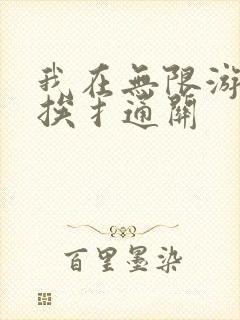 我在無限游
挨扌通關
百里墨染